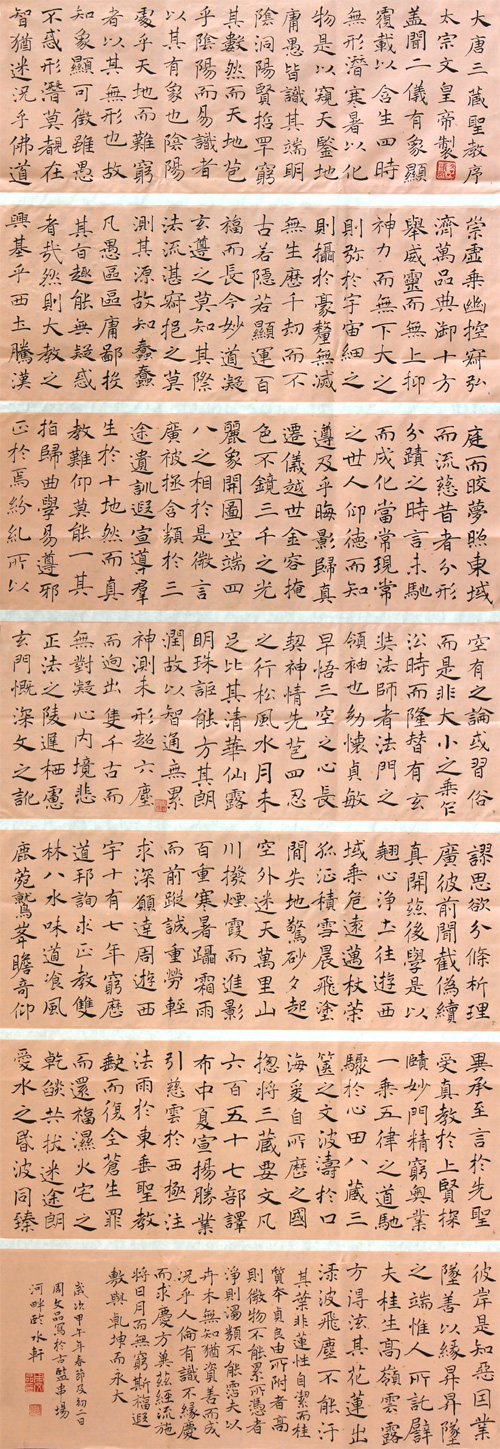 大唐三藏聖教序
太宗文皇帝製
盖聞二儀有象顯
覆載以含生四時
無形潛寒暑以化
物是以窺天鑒地
庸愚皆識其端明
陰洞陽賢哲罕窮
其數然而天地苞
乎陰陽而易識者
以其有象也陰陽
處乎天地而難窮
者以其無形也故
知象顯可徵雖愚
不惑形潛莫覩在
智猶迷況乎佛道
崇虛乘幽控寂弘
濟萬品典御十方
舉威靈而無上抑
神力而無下大之
則弥於宇宙細之
則攝於豪釐無滅
無生歷千劫而不
古若隱若顯運百
福而長今妙道凝
玄遵之莫知其際
法流湛寂挹之莫
測其源故知蠢蠢
凡愚區區庸鄙投
其旨趣能無疑惑
者哉然則大教之
興基乎西土騰漢
庭而皎夢照東域
而流慈昔者分形
分蹟之時言未馳
而成化當常現常
之世人仰德而知
遵及乎晦影歸真
遷儀越世金容掩
色不鏡三千之光
麗象開圖空端四
八之相於是微言
廣被拯含類於三
途遺訓遐宣導羣
生於十地然而真
教難仰莫能一其
指歸曲學易遵邪
正於焉紛糺所以
空有之論或習俗
而是非大小之乘乍
沿時而隆替有玄
奘法師者法門之
領袖也幼懷貞敏
早悟三空之心長
契神情先苞四忍
之行松風水月未
足比其清華仙露
明珠詎能方其朗
潤故以智通無累
神測未形超六塵
而迥出隻千古而
無對凝心內境悲
正法之陵遲栖慮
玄門慨深文之訛
謬思欲分條析理
廣彼前聞截偽續
真開茲後學是以
翹心淨土往遊西
域乘危遠邁杖策
孤征積雪晨飛塗
閒失地驚砂夕起
空外迷天萬里山
川撥煙霞而進影
百重寒暑躡霜雨
而前蹤誠重勞輕
求深願達周遊西
宇十有七年窮歷
道邦詢求正教雙
林八水味道飡風
鹿菀鷲峯瞻奇仰
異承至言於先聖
受真教於上賢探
賾妙門精窮奧業
一乘五律之道馳
驟於心田八藏三
篋之文波濤於口
海爰自所歷之國
揔將三藏要文凡
六百五十七部譯
布中夏宣揚勝業
引慈雲於西極注
法雨於東垂聖教
缺而復全蒼生罪
而還福濕火宅之
乾燄共拔迷途朗
愛水之昏波同臻
彼岸是知惡因業
墜善以緣昇昇墜
之端惟人所託譬
夫桂生高嶺雲露
方得泫其花蓮出
渌波飛塵不能汙
其葉非蓮性自潔而桂
質本貞良由所附者高
則微物不能累所憑者
淨則濁類不能沾夫以
卉木無知猶資善而成
況乎人倫有識不緣慶
而求慶方冀茲經流施
將日月而無窮斯福遐
敷與乾坤而永大
歲次甲午年春節及初二日
周文品寫於古盐串場
河畔水軒